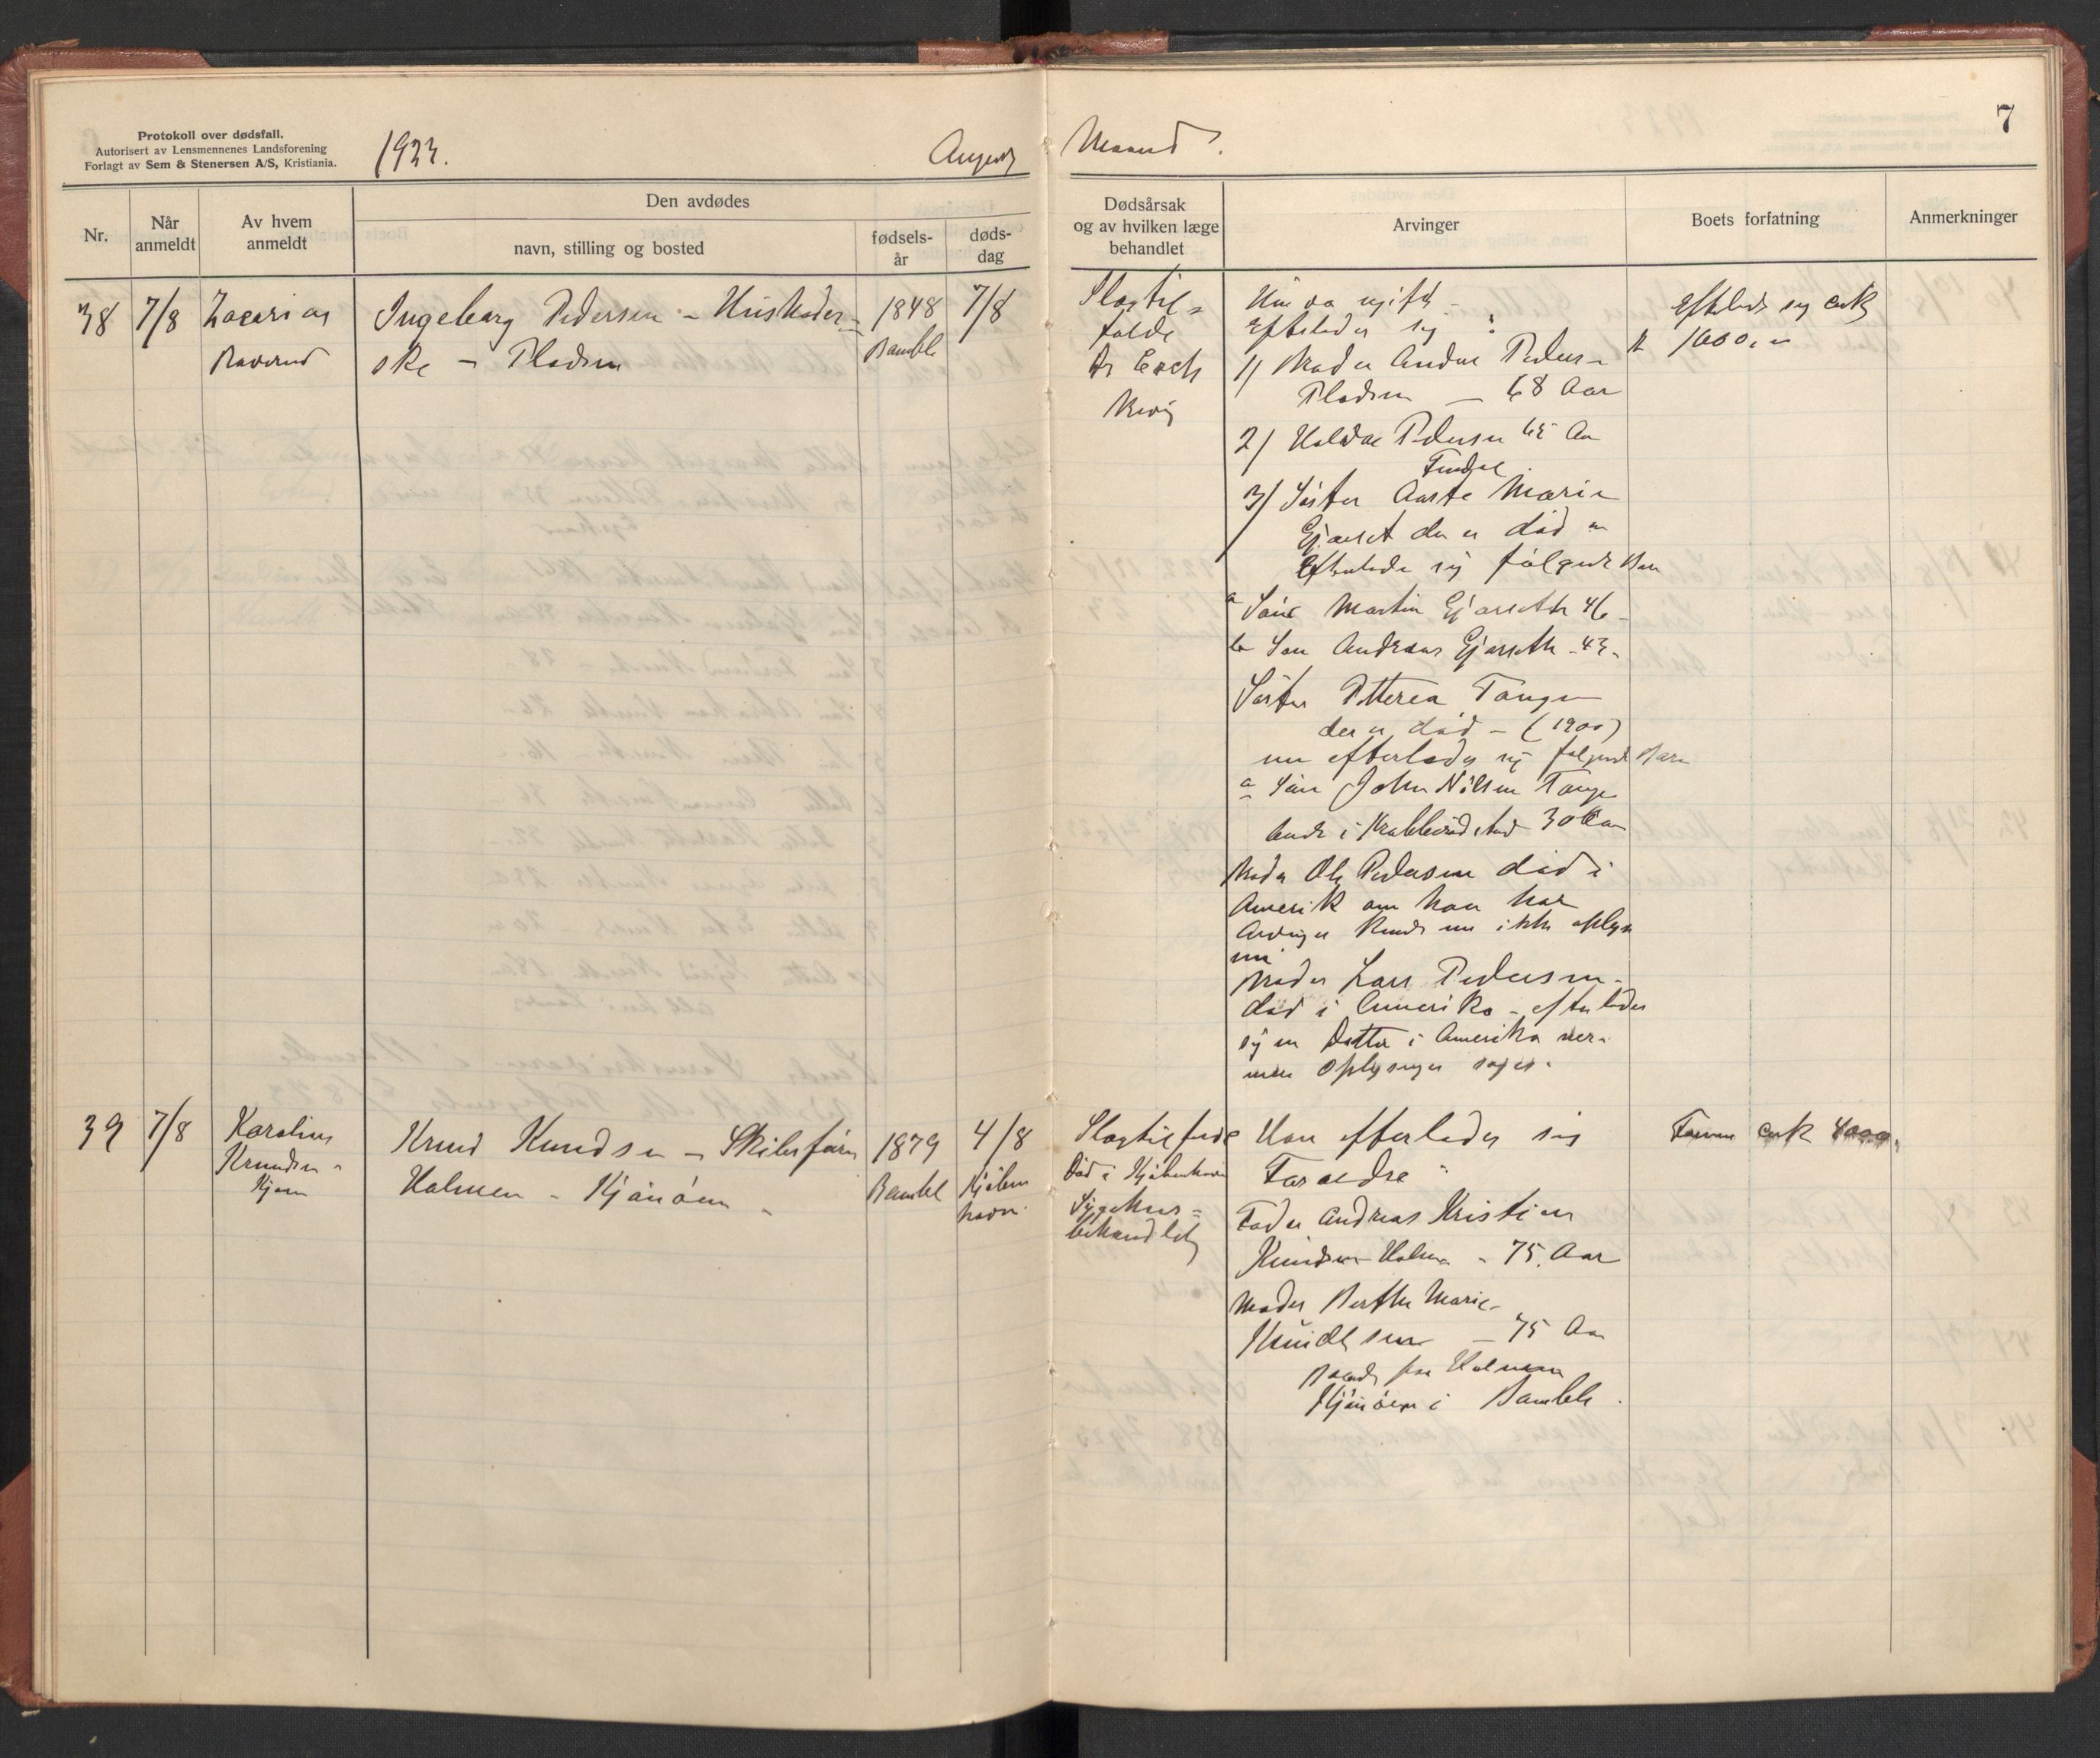 Protokoll over dødsfall.
Autorisert av Lensmennenes Landsforening
Forlagt av Sem & Stenersen A/S, Kristiania.
1923.
August
Maaned.
7
Nr.
Når anmeldt
Av hvem anmeldt
Den avdødes
navn, stilling og bosted
fødsels-år
døds-dag
Dødsårsak og av hvilken læge behandlet
Arvinger
Boets forfatning
Anmerkninger
38 7/8 Zacarias
Ingeborg Pedersen - Husholder-
ske - Pladsen
1848
Bamble
7/8
Slagtil-
fælde
Dr
Hun va ugift -
Efterlader sig :
1) Broder Andor Peders-
Pladsen — 68 Aar
2) Halvor Pedersen 65 Aa
3/ Søster Aaste Marie
Gjerset der er død
Efterlader sig følgende Barn
a Søn Martin Gjerseth 46 -
b Søn Andreas Gjerseth - 43 -
Søster Tange
der er død - (1900)
efterlader sig følgende Barn
a Søn John Nilsen Tange
i 30 Aar
Broder Ole Pedersen død i
Amerik om han har
Arvinger kunde ikke oplyse
Broder Lars Pedersen -
død i Amerika - efterlader
sig en Datter i Amerika
Oplysninger
Efterlader sig cirk
1000,
39 7/8 Karolius
Knudsen -
Knud Knudsen - Skibsfører
Holmen -
1879
Bambl
4/8
Kjøben
havn.
Slagtilfælde
Død i Kjøbenhavn
Sygehus-
behandlet
Han efterlader sig
Foraeldre
Fader Andreas Kristian
Knudsen Holmen - 75 Aar
Moder Berthe Marie
Knudsen — 75 Aa
Holmen
i Bamble.
Formue cirk 4000,